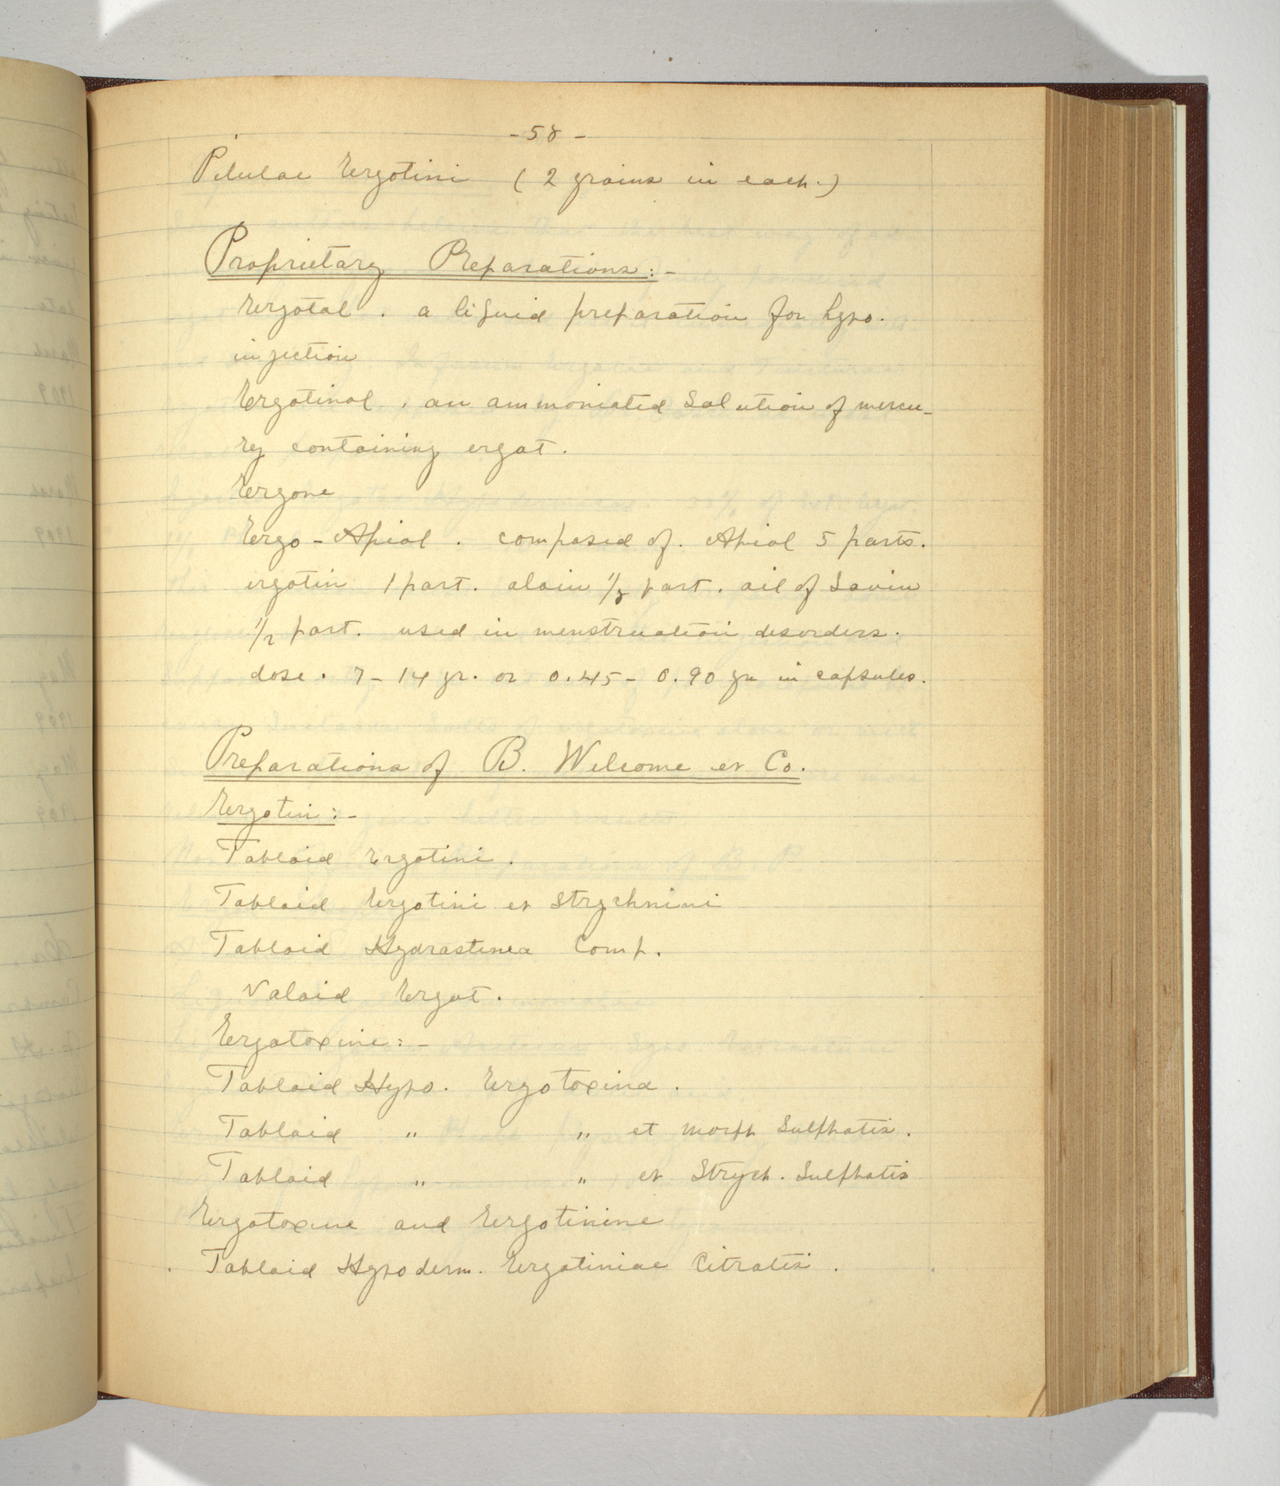 -58-
Pilulae Ergotini (2 grains in each.)
Proprietary Preparations:-
Ergotal . a liquid preparation for hypo.
injection
Ergotinol . an ammoniated Solution of mercu-
ry containing ergot.
Ergone
Ergo-Apiol . composed of. Apiol 5 parts.
ergotin 1 part. aloin 1/8 part. oil of Savin
1/2 part. used in menstruation disorders.
dose. 7-14 gr. or 0.45-0.90 gm in capsules.
Preparations of B. Welcome et Co.
Ergotin:-
Tabloid Ergotini.
Tabloid Ergotini et Strychnini
Tabloid Hydrastinea Comp.
Valoid Ergot.
Ergotoxine:-
Tabloid Hypo. Ergotoxina.
Tabloid " " et morph Sulphatis.
Tabloid " " et Strych. Sulphatis
Ergotoxine and Ergotinine
Tabloid Hypoderm. Ergotiniae Citratis.